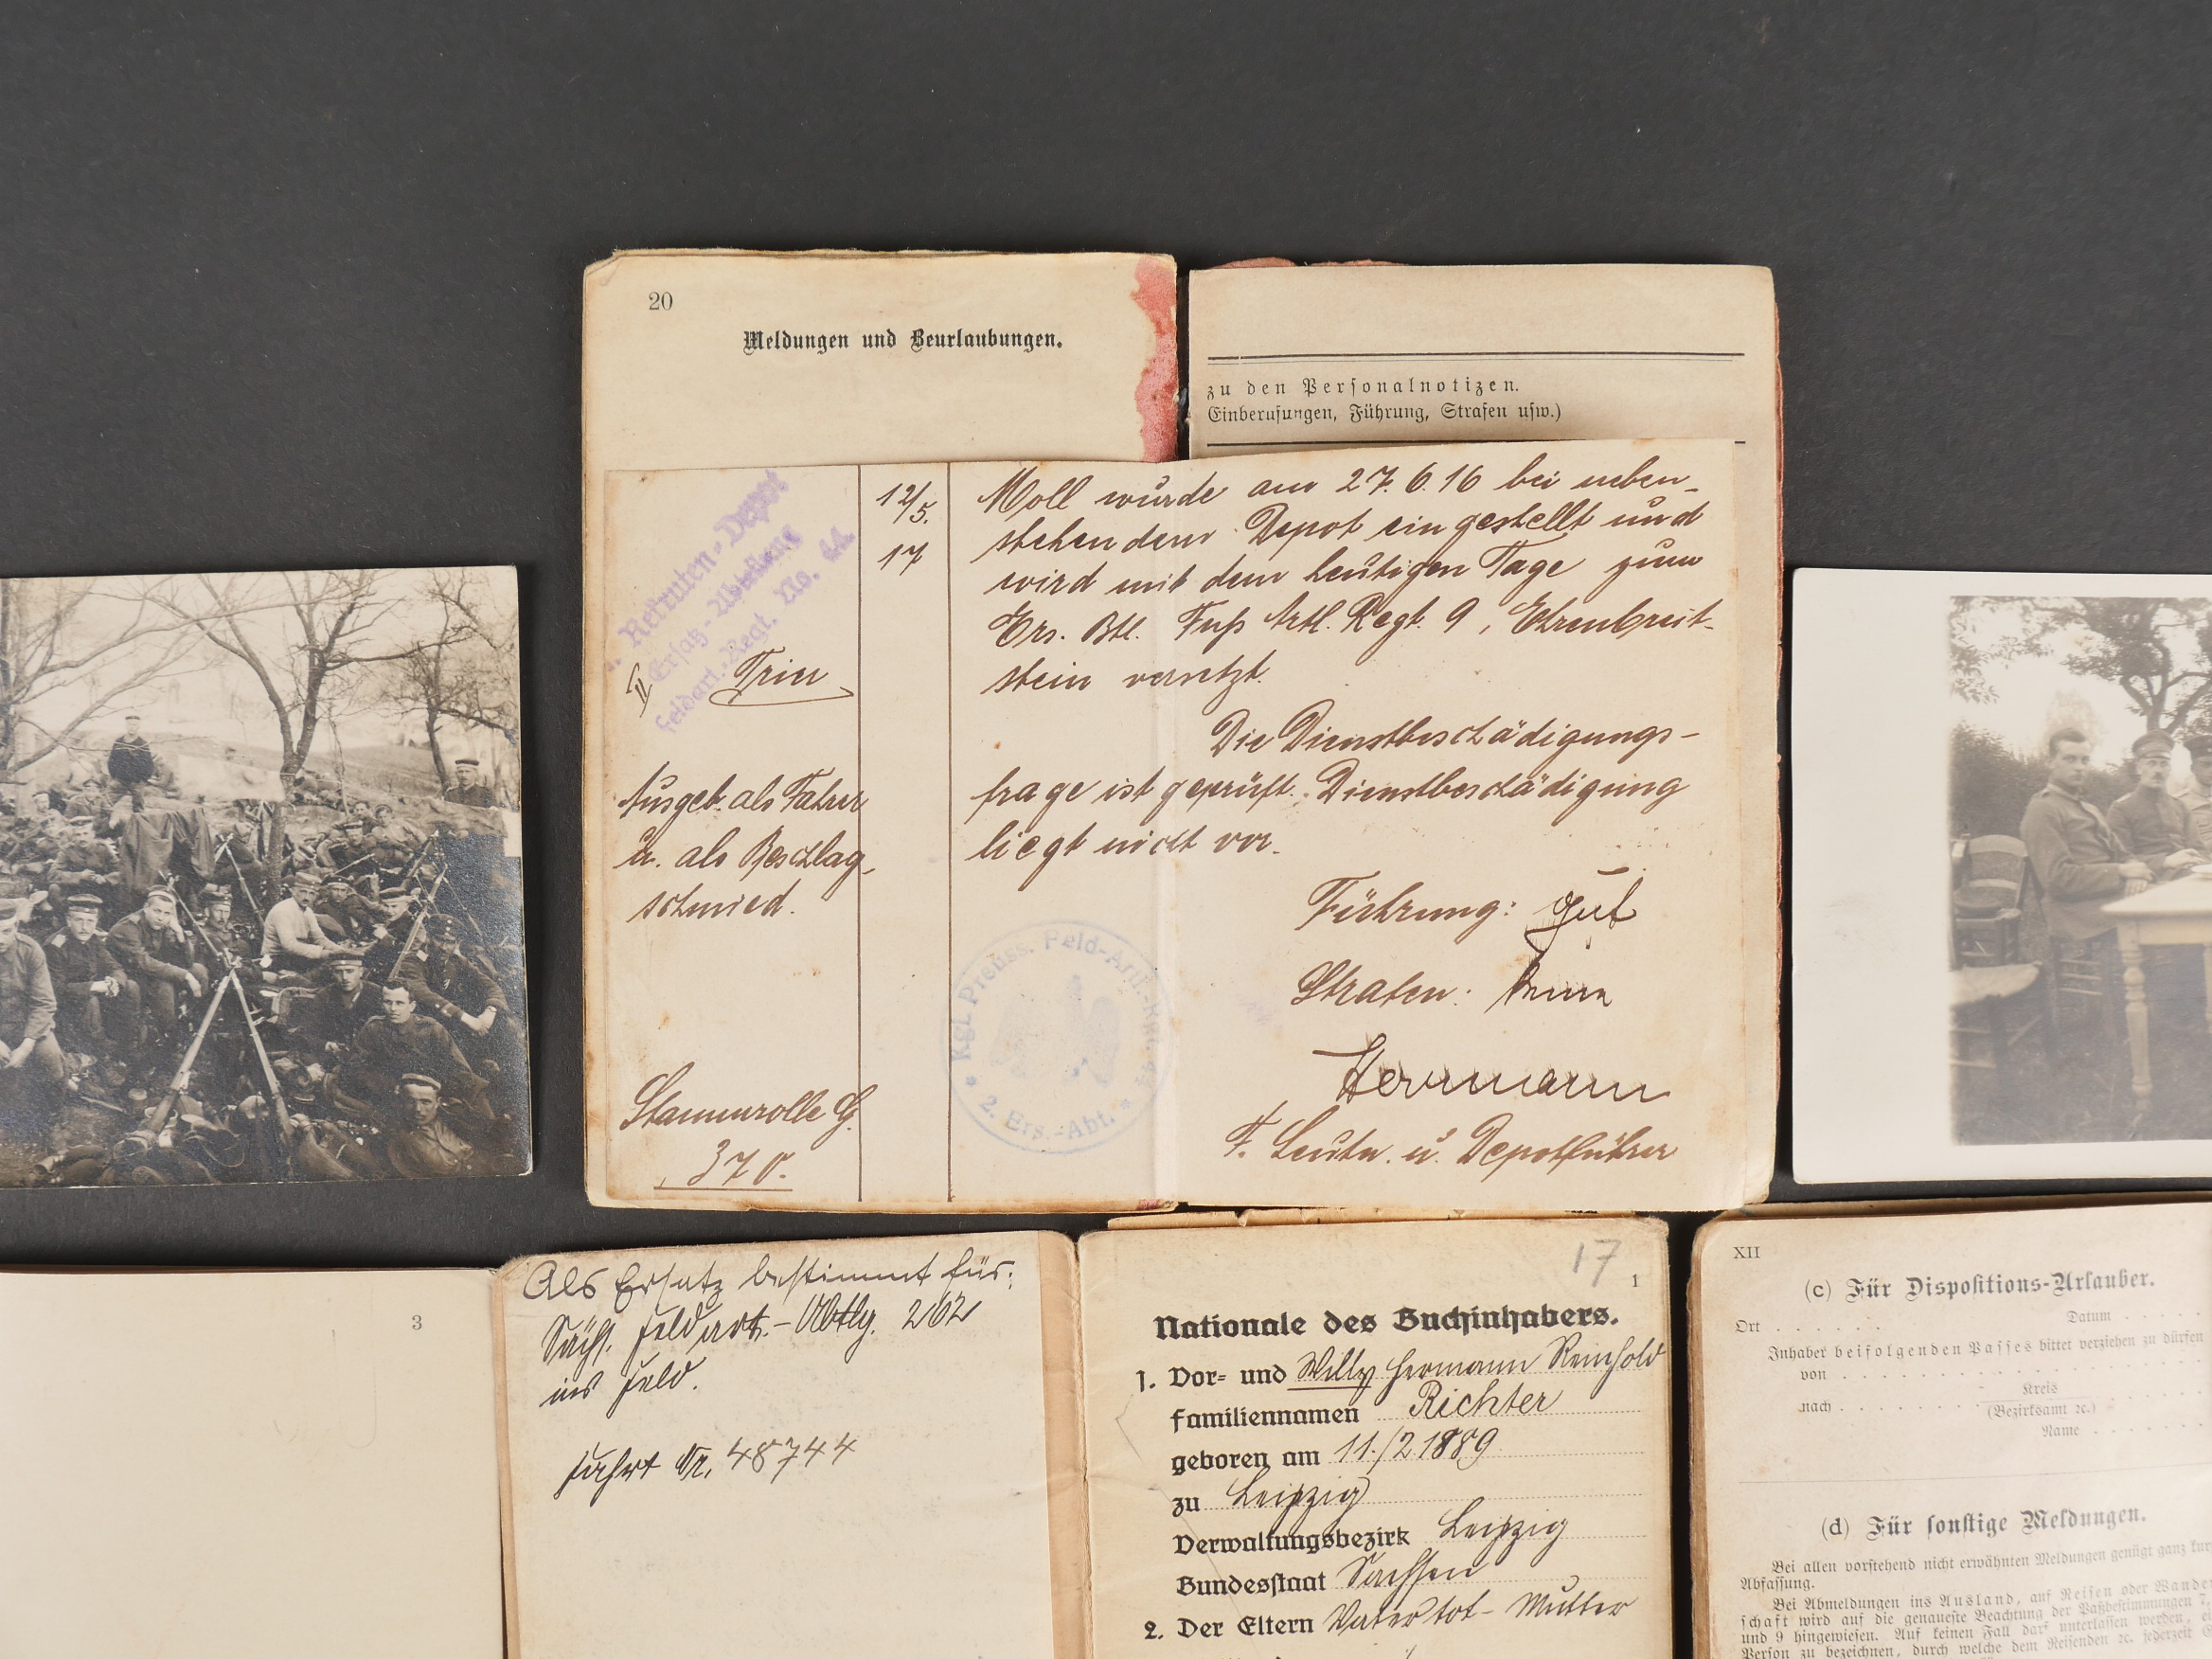 20
Meldungen und Beurlaubungen.
zu den Personalnotizen.
Einberufungen, Führung, Strafen usw.)
Rekruten-Depot
Ersatz-Abteilung
Feldart.-Regt. No. 44.
II
Trier
12/5.
17
Moll wurde am 27.6.16 bei neben-
stehendem Depot eingestellt und
wird mit dem heutigen Tage zum
Ers. Btl. Fuß Artl. Regt. 9, Ehrenbreit-
stein versetzt.
Die Dienstbeschädigungs-
frage ist geprüft. Dienstbeschädigung
liegt nicht vor.
Ausgeb. als Fahrer
u. als Beschlag-
schmied.
Führung: gut
Strafen: keine
Herrmann
F. Leutn. u. Depotführer
Stammrolle G.
370.
Kgl. Preuss. Feld-Artl.-
* 2. Ers.-Abt. *
3
Als Ersatz bestimmt für:
Sächs. Feldart.-Abtlg. 262
ins Feld.
Fahrt Nr. 48744
17
1
Nationale des Buchinhabers.
1. Vor- und Willy Hermann Reinhold
Familiennamen Richter
geboren am 11./2.1889
zu Leipzig
Verwaltungsbezirk Leipzig
Bundesstaat Sachsen
2. Der Eltern Vater tot - Mutter
XII
(c) Für Dispositions-Urlauber.
Ort . . . . . . Datum . . . . .
Inhaber beifolgenden Passes bittet verziehen zu dürfen
von . . . . . . . . . .
nach . . . . . . . Kreis
(Bezirksamt ꝛc.)
Name . . . .
(d) Für sonstige Meldungen.
Bei allen vorstehend nicht erwähnten Meldungen genügt ganz
Abfassung.
Bei Abmeldungen ins Ausland, auf Reisen oder
schaft wird auf die genaueste Beachtung der Paßbestimmungen 7,
und 9 hingewiesen. Auf keinen Fall darf unterlassen werden,
Person zu bezeichnen, durch welche dem Reisenden ꝛc. jederzeit